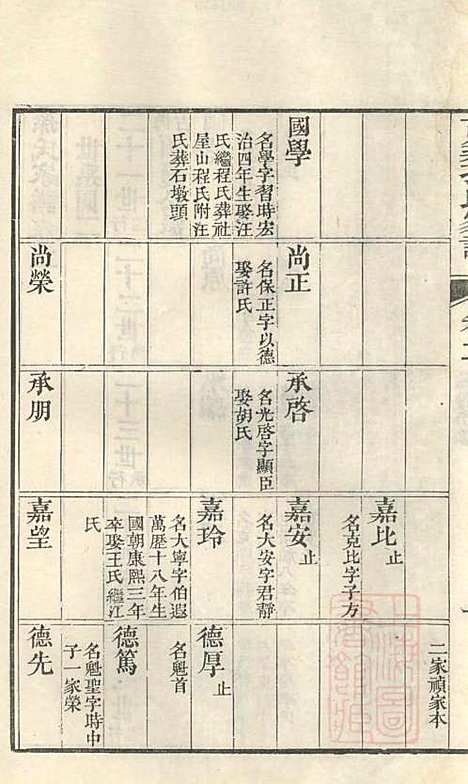 國學
名學字習時宏
治四年生娶汪
氏繼程氏葬社
屋山程氏附汪
氏葬石墩頭
尚正
名保正字以德
娶許氏
尚榮
承啓
名光啓字顯臣
娶胡氏
承朋
嘉比止
名克比字子方
嘉安止
名大安字君靜
嘉玲
名大寧字伯遐
萬歷十八年生
國朝康熙三年
卒娶王氏繼江
氏
嘉望
二家禎家本
德厚止
名魁首
德篤
名魁聖字時中
子一家榮
德先